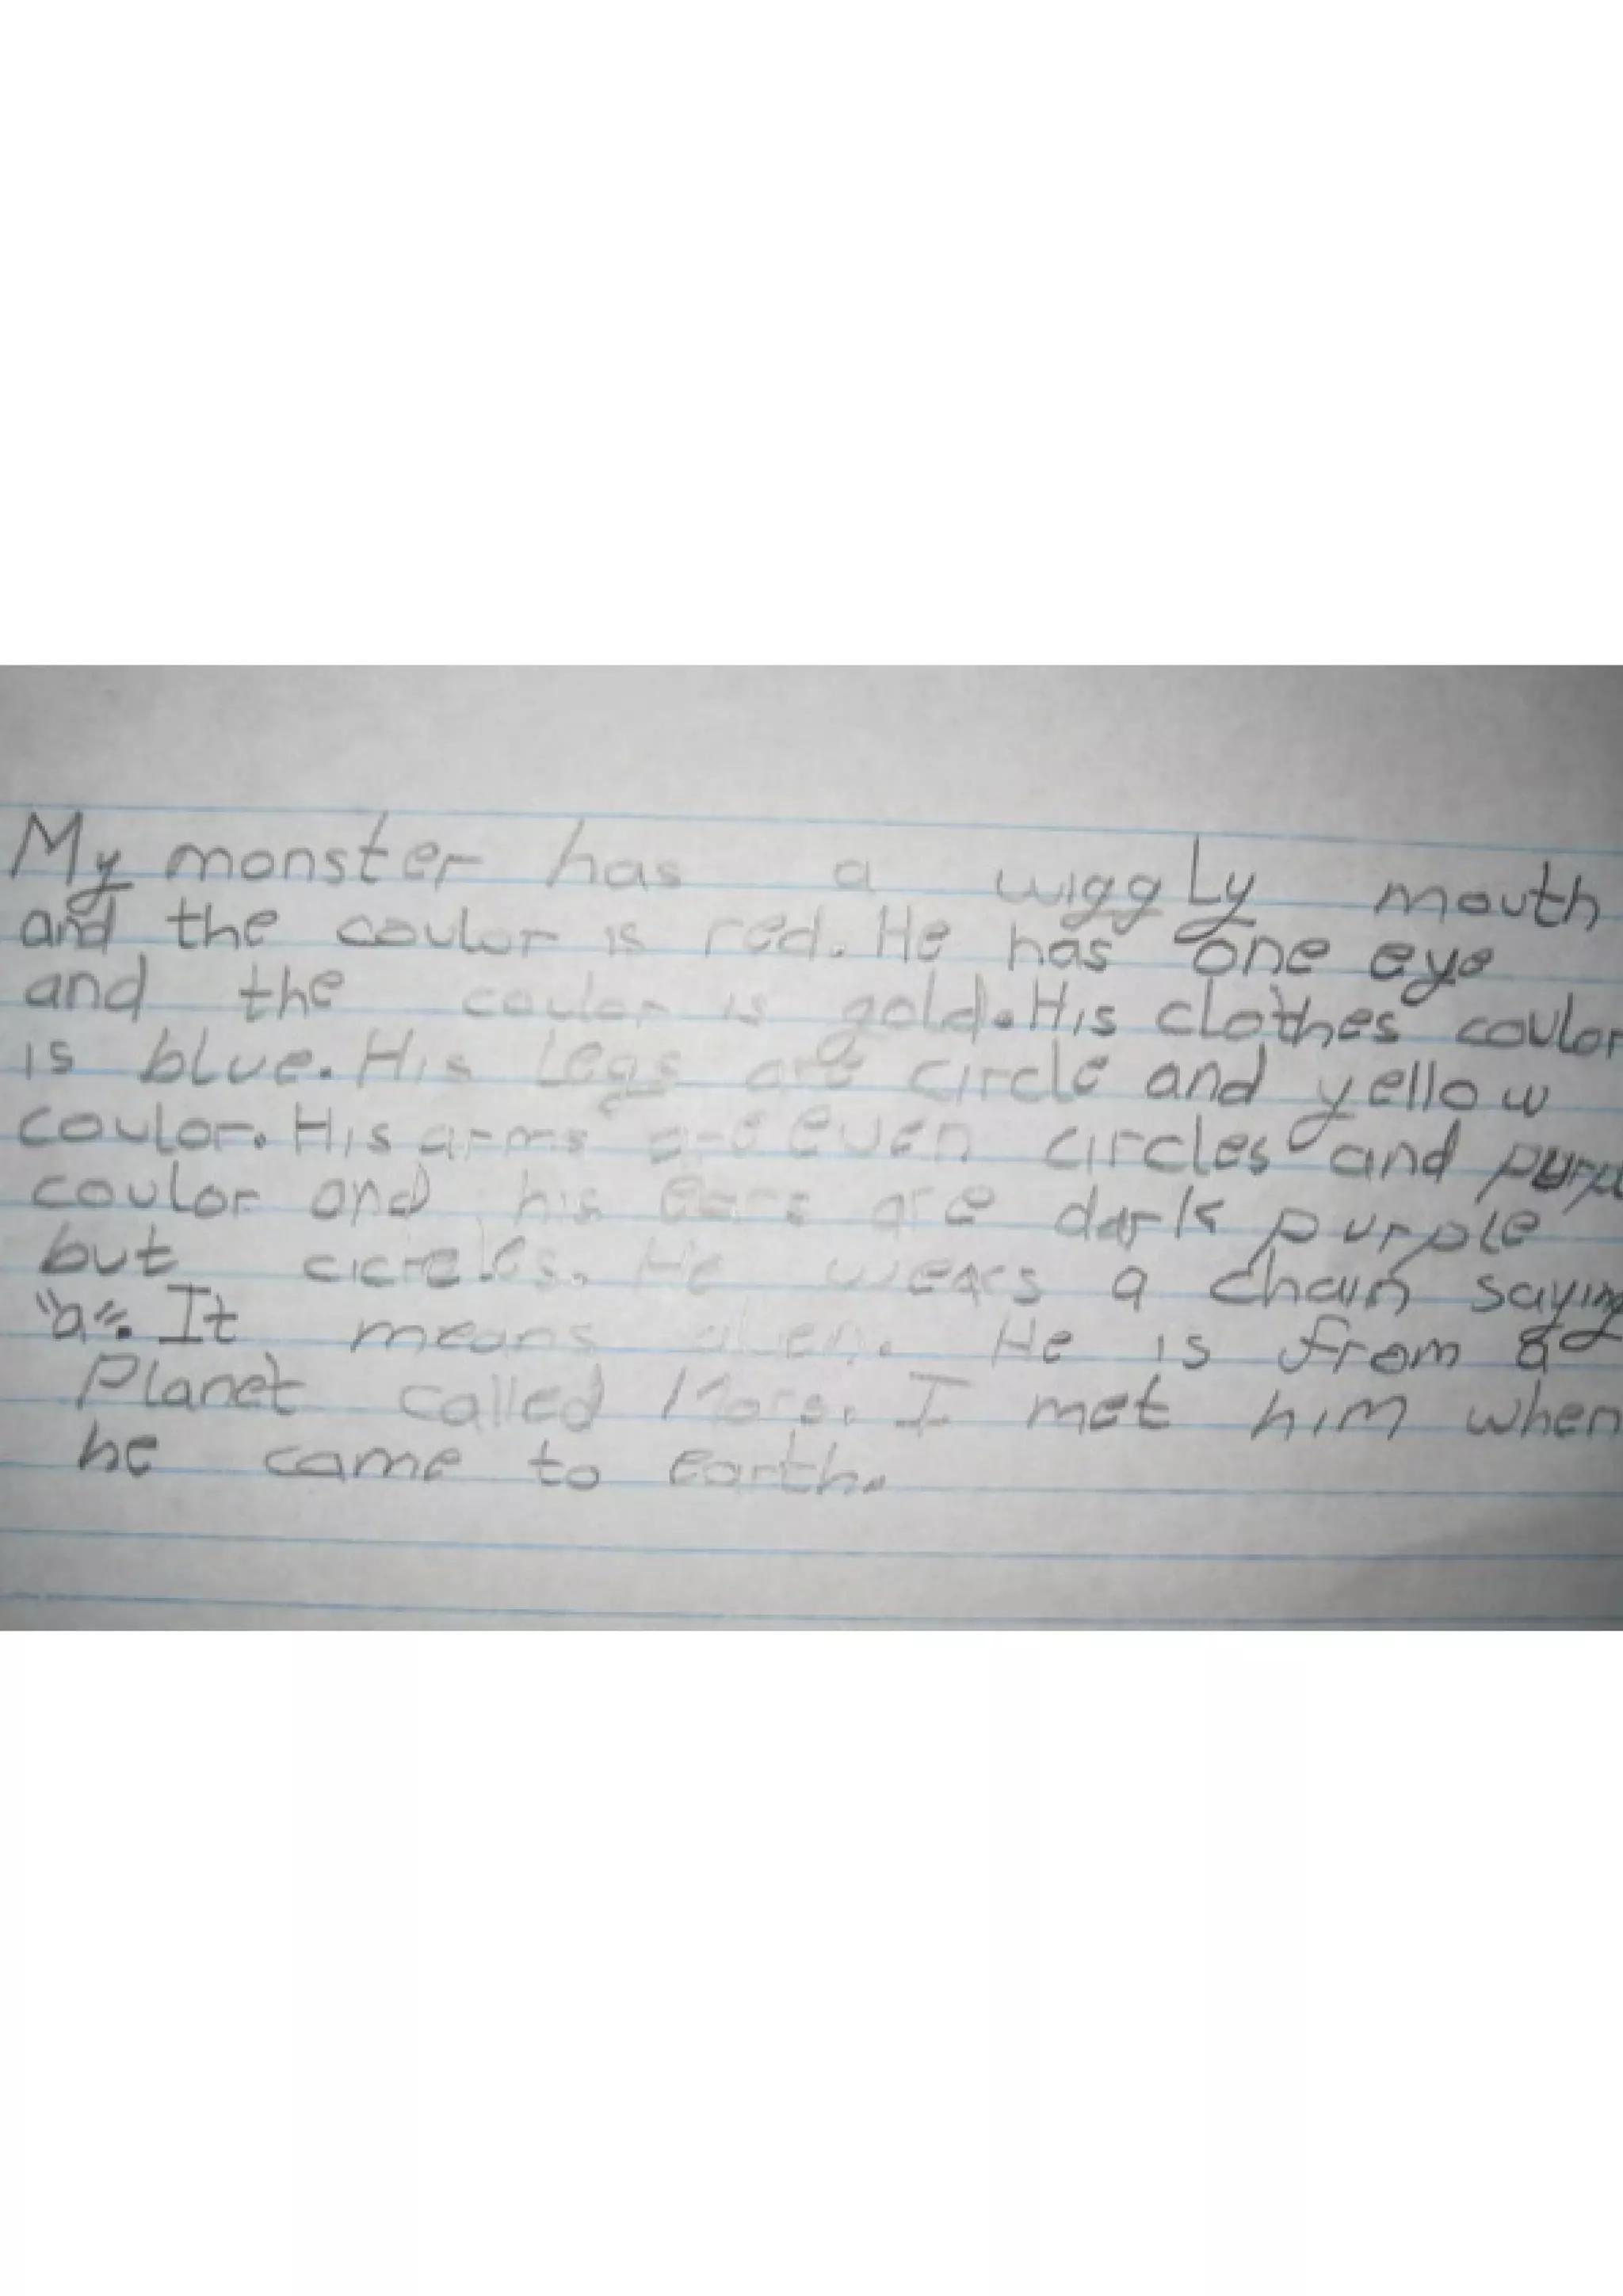 My monster has a wiggly mouth
and the coulor is red. He has one eye
and the coulor is gold. His clothes coulor
is blue. His legs are circle and yellow
coulor. His arms are even circles and purpl
coulor and his ears are dark purple
but cicrcles. He wears a chain saying
"a". It means alien. He is from a
Planet called Mars. I met him when
he came to earth.